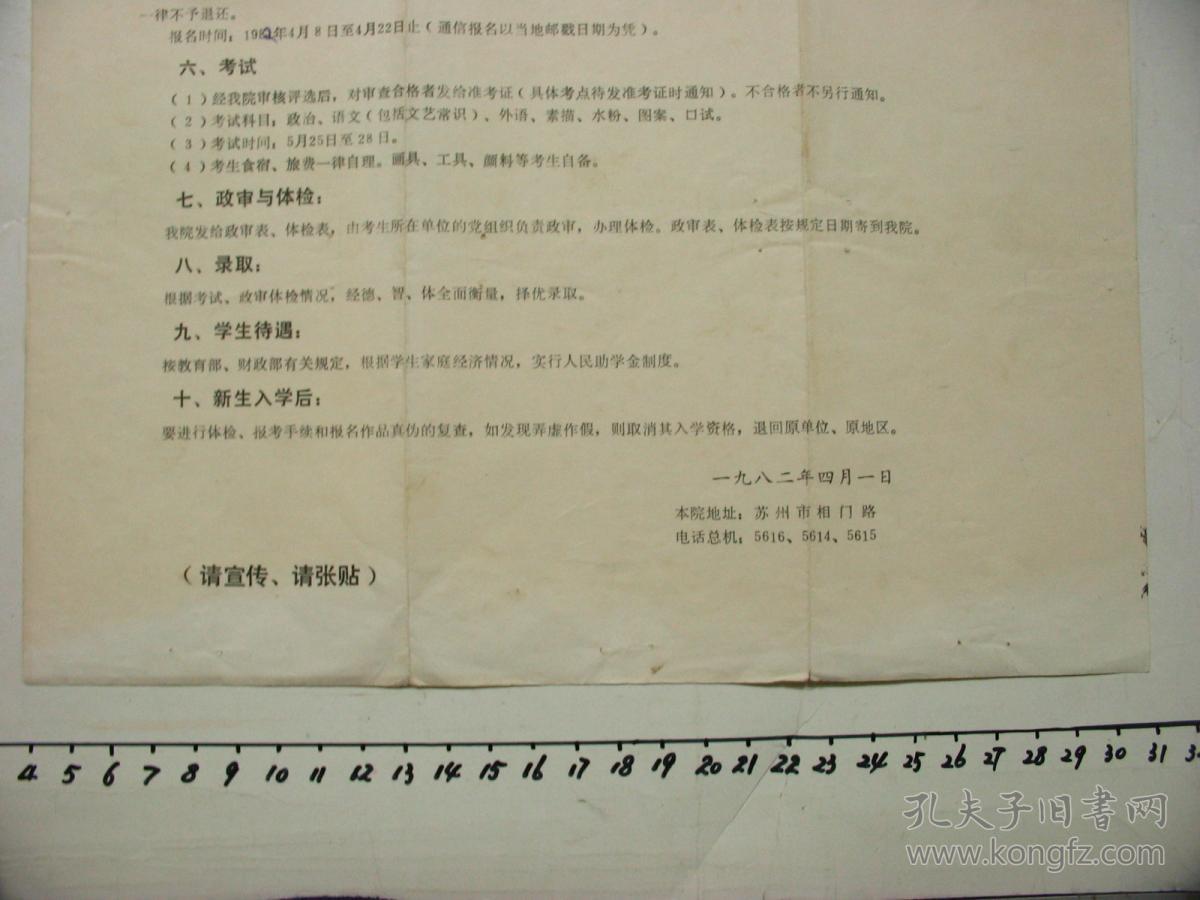 一律不予退还。
报名时间：1982年4月8日至4月22日止（通信报名以当地邮戳日期为凭）。
六、考试
（1）经我院审核评选后，对审查合格者发给准考证（具体考点待发准考证时通知）。不合格者不另行通知。
（2）考试科目：政治、语文（包括文艺常识）、外语、素描、水粉、图案、口试。
（3）考试时间：5月25日至28日。
（4）考生食宿、旅费一律自理。画具、工具、颜料等考生自备。
七、政审与体检：
我院发给政审表、体检表，由考生所在单位的党组织负责政审，办理体检。政审表、体检表按规定日期寄到我院。
八、录取：
根据考试、政审体检情况，经德、智、体全面衡量，择优录取。
九、学生待遇：
按教育部、财政部有关规定，根据学生家庭经济情况，实行人民助学金制度。
十、新生入学后：
要进行体检、报考手续和报名作品真伪的复查，如发现弄虚作假，则取消其入学资格，退回原单位、原地区。
一九八二年四月一日
本院地址：苏州市相门路
电话总机：5616、5614、5615
（请宣传、请张贴）
4 5 6 7 8 9 10 11 12 13 14 15 16 17 18 19 20 21 22 23 24 25 26 27 28 29 30 31
孔夫子旧书网
www.kongfz.com